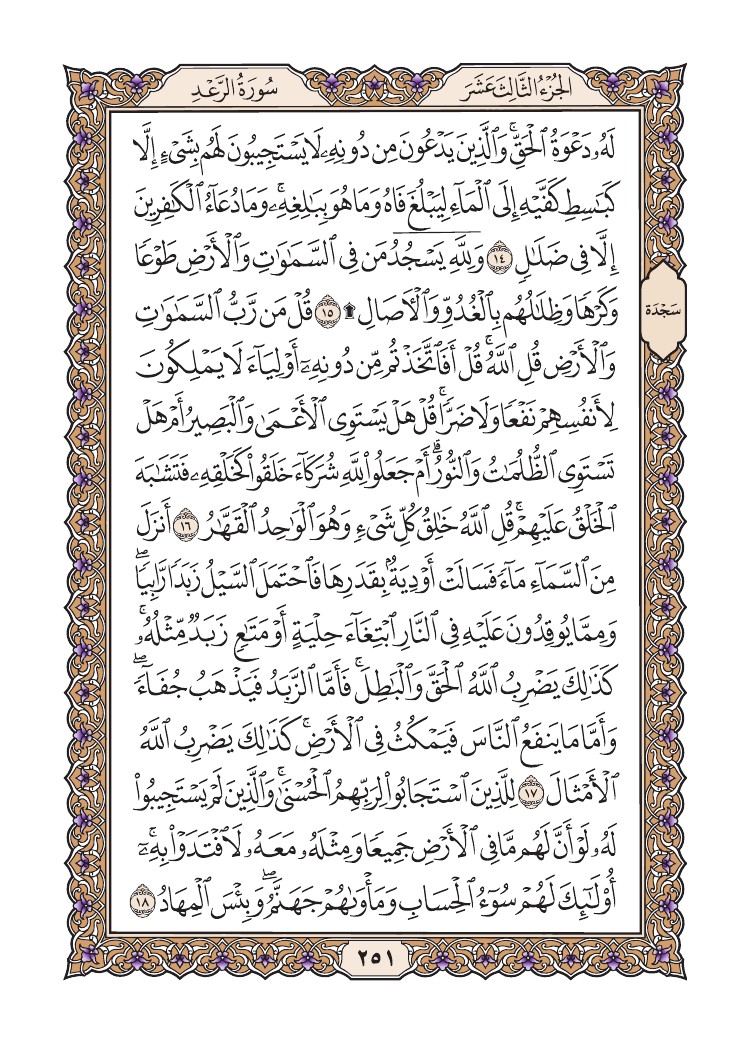 الجُزْءُ الثَّالِثَ عَشَرَ
سُورَةُ الرَّعْدِ
لَهُۥ دَعْوَةُ ٱلْحَقِّۖ وَٱلَّذِينَ يَدْعُونَ مِن دُونِهِۦ لَا يَسْتَجِيبُونَ لَهُم بِشَىْءٍ إِلَّا
كَبَٰسِطِ كَفَّيْهِ إِلَى ٱلْمَآءِ لِيَبْلُغَ فَاهُ وَمَا هُوَ بِبَٰلِغِهِۦۚ وَمَا دُعَآءُ ٱلْكَٰفِرِينَ
إِلَّا فِى ضَلَٰلٍ ١٤ وَلِلَّهِ يَسْجُدُ مَن فِى ٱلسَّمَٰوَٰتِ وَٱلْأَرْضِ طَوْعًا
وَكَرْهًا وَظِلَٰلُهُم بِٱلْغُدُوِّ وَٱلْءَاصَالِ ۩ ١٥ قُلْ مَن رَّبُّ ٱلسَّمَٰوَٰتِ
سَجْدَة
وَٱلْأَرْضِ قُلِ ٱللَّهُۚ قُلْ أَفَٱتَّخَذْتُم مِّن دُونِهِۦٓ أَوْلِيَآءَ لَا يَمْلِكُونَ
لِأَنفُسِهِمْ نَفْعًا وَلَا ضَرًّاۚ قُلْ هَلْ يَسْتَوِى ٱلْأَعْمَىٰ وَٱلْبَصِيرُ أَمْ هَلْ
تَسْتَوِى ٱلظُّلُمَٰتُ وَٱلنُّورُۗ أَمْ جَعَلُوا۟ لِلَّهِ شُرَكَآءَ خَلَقُوا۟ كَخَلْقِهِۦ فَتَشَٰبَهَ
ٱلْخَلْقُ عَلَيْهِمْۚ قُلِ ٱللَّهُ خَٰلِقُ كُلِّ شَىْءٍ وَهُوَ ٱلْوَٰحِدُ ٱلْقَهَّٰرُ ١٦ أَنزَلَ
مِنَ ٱلسَّمَآءِ مَآءً فَسَالَتْ أَوْدِيَةٌۢ بِقَدَرِهَا فَٱحْتَمَلَ ٱلسَّيْلُ زَبَدًا رَّابِيًاۖ
وَمِمَّا يُوقِدُونَ عَلَيْهِ فِى ٱلنَّارِ ٱبْتِغَآءَ حِلْيَةٍ أَوْ مَتَٰعٍ زَبَدٌ مِّثْلُهُۥۚ
كَذَٰلِكَ يَضْرِبُ ٱللَّهُ ٱلْحَقَّ وَٱلْبَٰطِلَۚ فَأَمَّا ٱلزَّبَدُ فَيَذْهَبُ جُفَآءًۖ
وَأَمَّا مَا يَنفَعُ ٱلنَّاسَ فَيَمْكُثُ فِى ٱلْأَرْضِۚ كَذَٰلِكَ يَضْرِبُ ٱللَّهُ
ٱلْأَمْثَالَ ١٧ لِلَّذِينَ ٱسْتَجَابُوا۟ لِرَبِّهِمُ ٱلْحُسْنَىٰۚ وَٱلَّذِينَ لَمْ يَسْتَجِيبُوا۟
لَهُۥ لَوْ أَنَّ لَهُم مَّا فِى ٱلْأَرْضِ جَمِيعًا وَمِثْلَهُۥ مَعَهُۥ لَٱفْتَدَوْا۟ بِهِۦٓۚ
أُو۟لَٰٓئِكَ لَهُمْ سُوٓءُ ٱلْحِسَابِ وَمَأْوَىٰهُمْ جَهَنَّمُۖ وَبِئْسَ ٱلْمِهَادُ ١٨
٢٥١